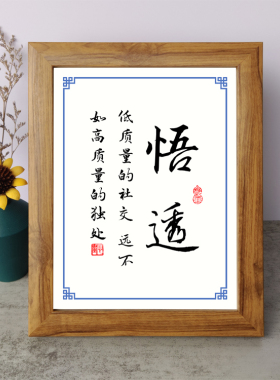 悟透
低质量的社交 远不
如高质量的独处